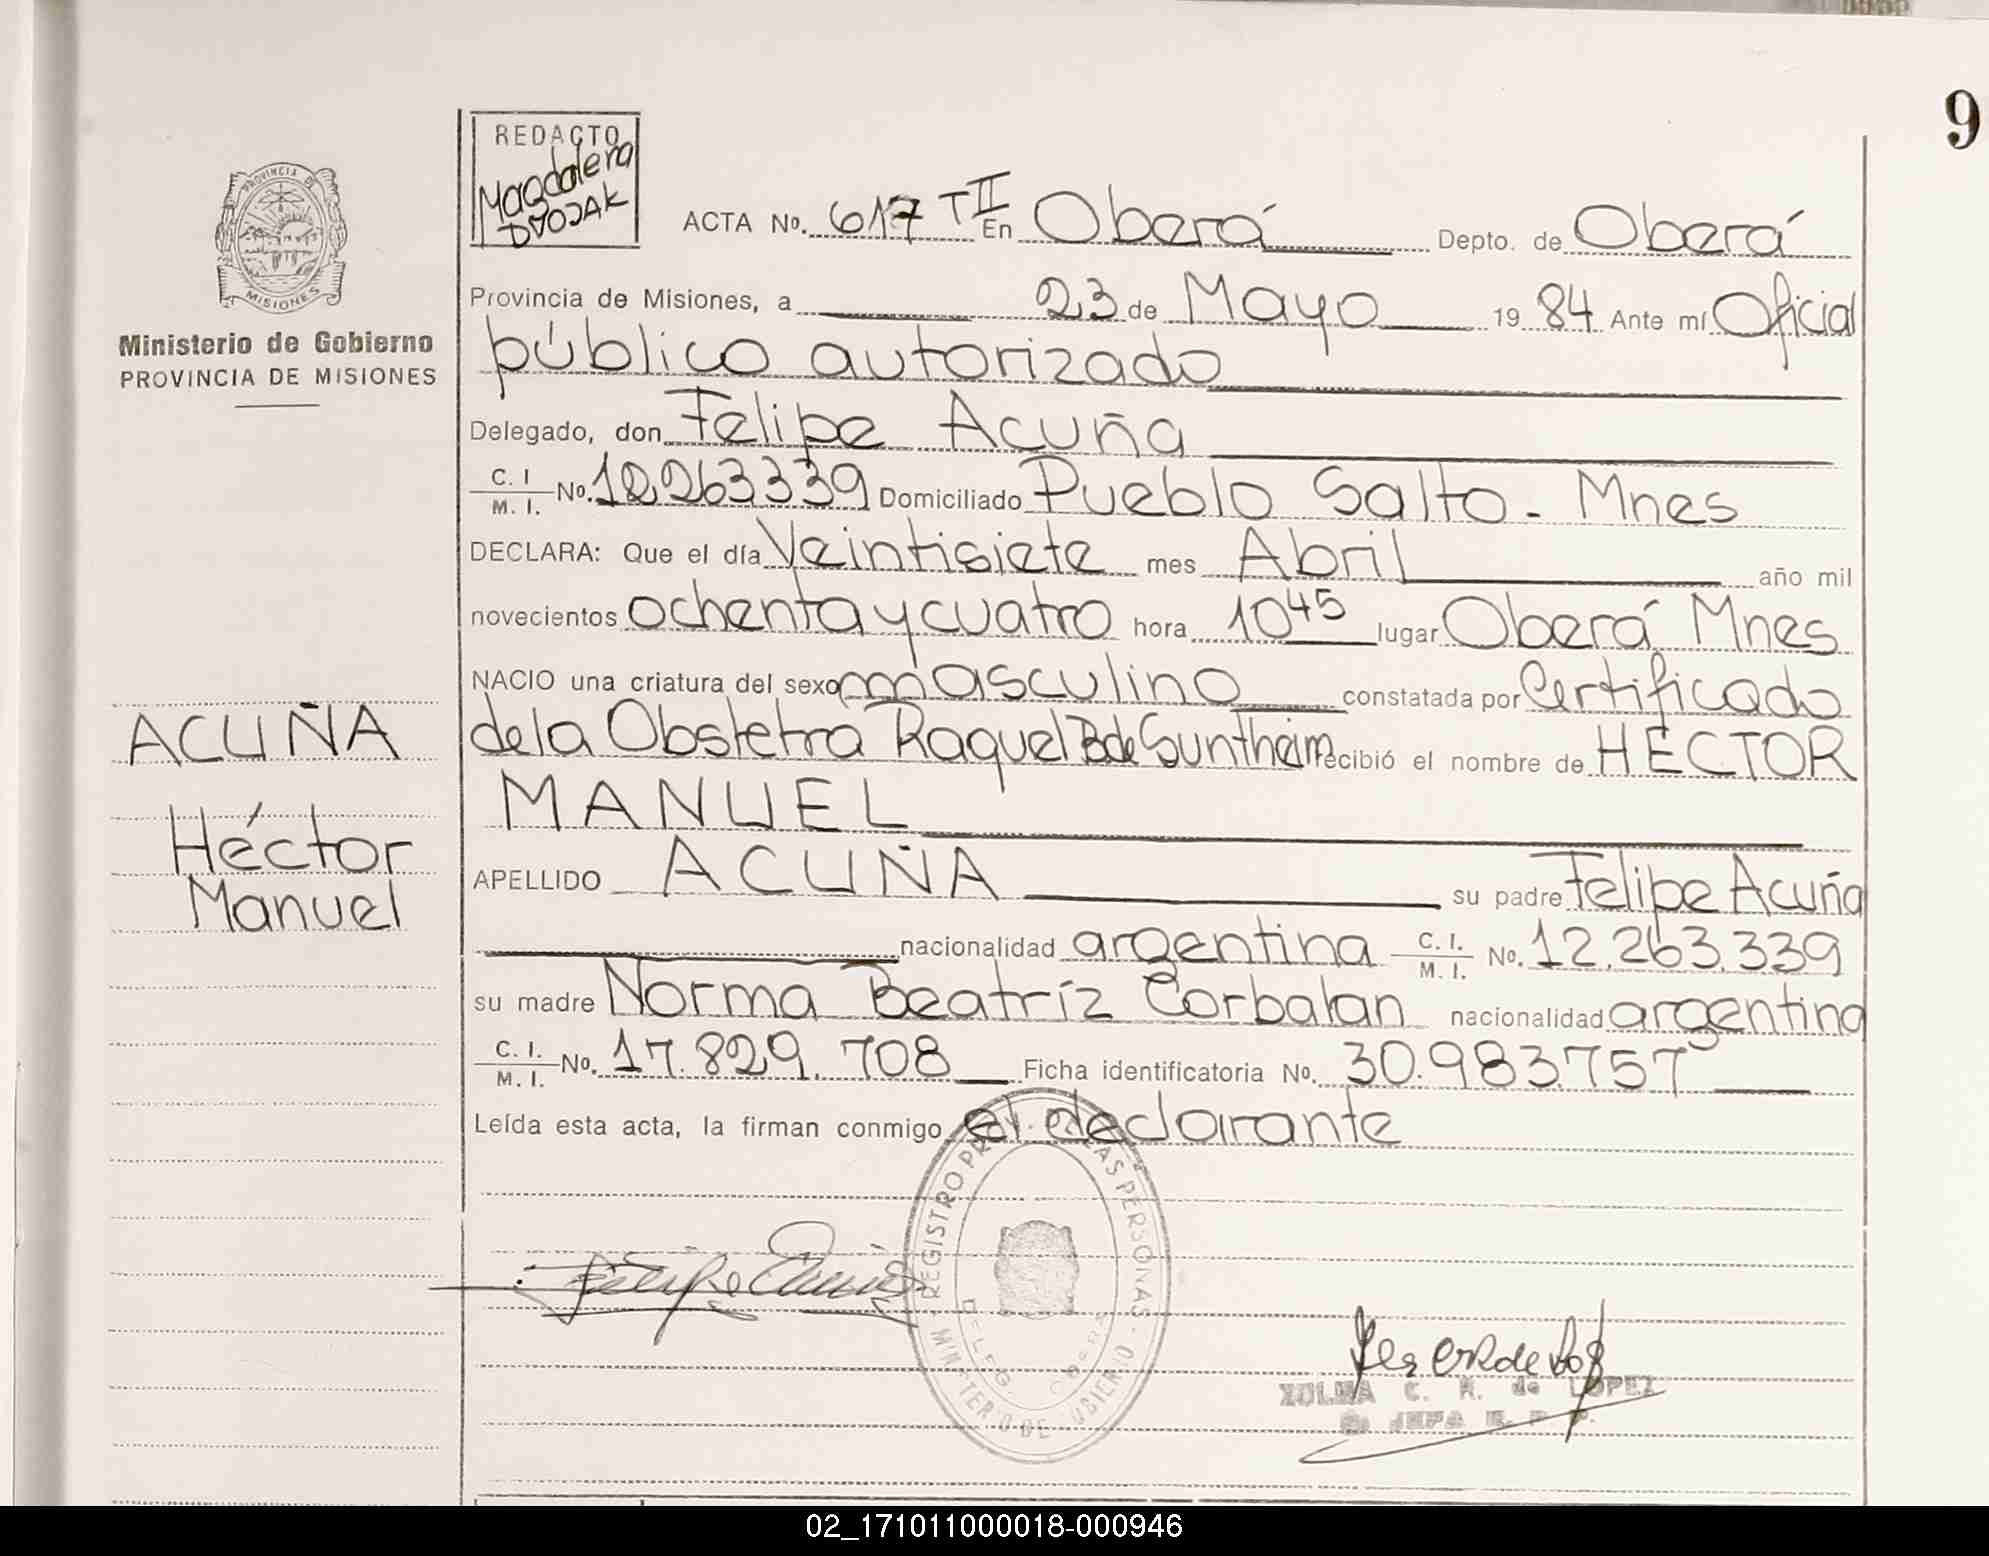 9
REDACTO
Magdalena
DVOJAK
PROVINCIA DE
MISIONES
Ministerio de Gobierno
PROVINCIA DE MISIONES
ACTA No. 617 T II En Oberá Depto. de Oberá
Provincia de Misiones, a 23 de Mayo 19 84 Ante mí Oficial
público autorizado
Delegado, don Felipe Acuña
C. I. / M. I. No. 12.263.339 Domiciliado Pueblo Salto - Mnes
DECLARA: Que el día Veintisiete mes Abril año mil
novecientos ochenta y cuatro hora 10 45 lugar Oberá Mnes
NACIO una criatura del sexo masculino constatada por Certificado
de la Obstetra Raquel B de Suntheim recibió el nombre de HECTOR
MANUEL
APELLIDO ACUÑA su padre Felipe Acuña
nacionalidad argentina C. I. / M. I. No. 12.263.339
su madre Norma Beatríz Corbalan nacionalidad argentina
C. I. / M. I. No. 17.829.708 Ficha identificatoria No. 30.983.757
Leída esta acta, la firman conmigo el declarante
ACUÑA
Héctor
Manuel
Felipe Acuña
REGISTRO PERSONAS
MINISTERIO DE GOBIERNO
DELEG. OBERA
ZULMA C. R. de LOPEZ
JEFA
02_171011000018-000946